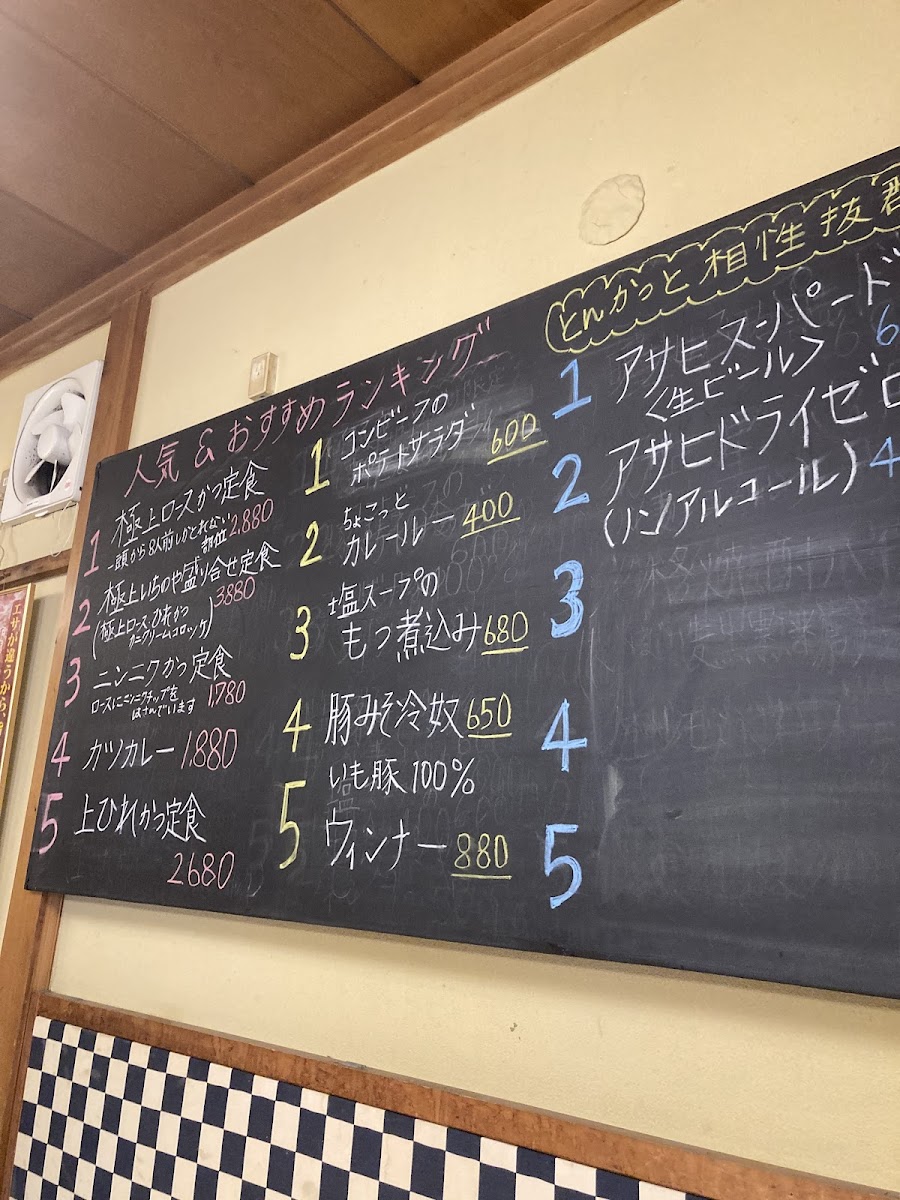 人気&おすすめランキング
1 極上ロースかつ定食
一頭から8人前しかとれない
部位 2,880
2 極上いちのや盛り合せ定食
(極上ロース・ひれかつ
カニクリームコロッケ) 3880
3 ニンニクかつ定食
ロースにニンニクチップを
はさんでいます 1,780
4 カツカレー 1,880
5 上ひれかつ定食
2680
1 コンビーフの
ポテトサラダ 600
2 ちょこっと
カレールー 400
3 塩スープの
もつ煮込み 680
4 豚みそ冷奴 650
5 いも豚100%
ウィンナー 880
とんかつと相性抜群
1 アサヒスーパード
<生ビール> 6
2 アサヒドライゼロ
(ノンアルコール) 4
3
4
5
エサが違うから、